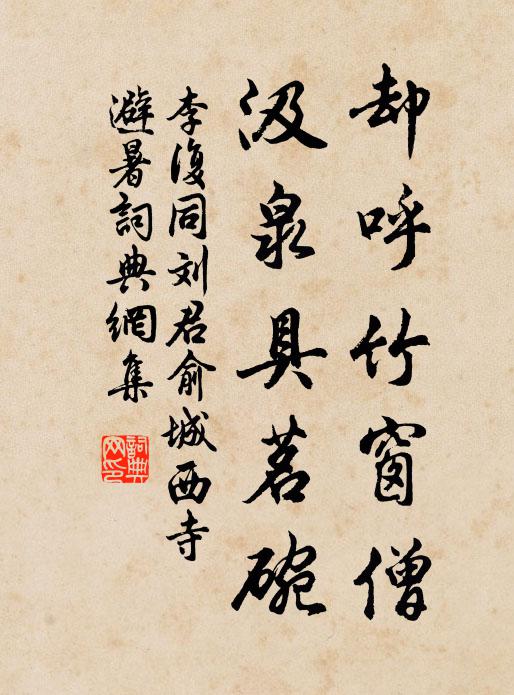 却呼竹窗僧
汲泉具茗碗
李復同刘君俞城西寺
避暑詞典網集
詞典
网印